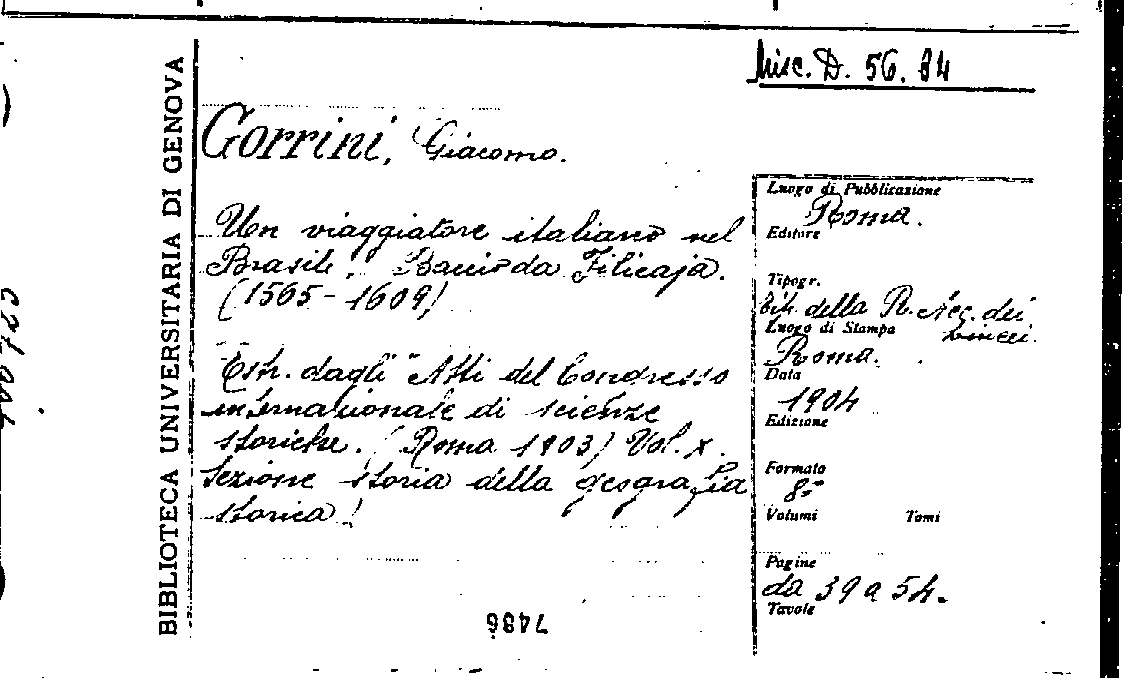 Misc. D. 56. 84
BIBLIOTECA UNIVERSITARIA DI GENOVA
Gorrini, Giacomo.
Un viaggiatore italiano nel
Brasile, Baccio da Filicaja.
(1565-1609)
Estr. dagli "Atti del Congresso
internazionale di scienze
storiche. (Roma 1903) Vol. X.
Sezione storia della geografia
storica!
Luogo di Pubblicazione
Roma.
Editore
Tipogr.
tip. della R. Acc. dei
Lincei.
Luogo di Stampa
Roma.
Data
1904
Edizione
Formato
8°
Volumi Tomi
Pagine
da 39 a 54.
Tavole
7486